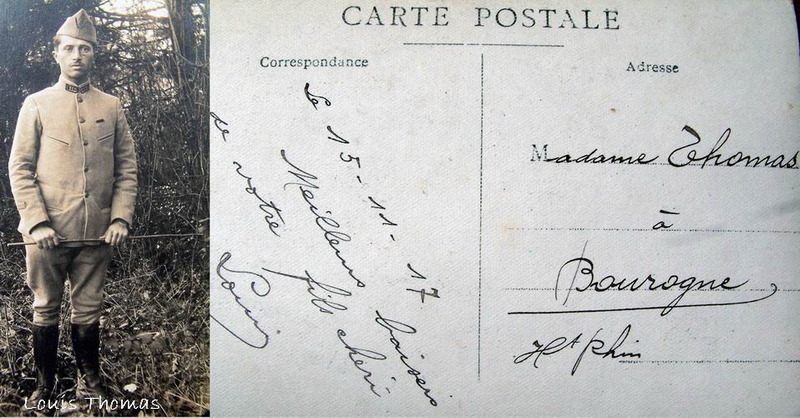 Louis Thomas
CARTE POSTALE
Correspondance
Le 15-11-17
Meilleurs baisers
de votre fils chéri
Louis
Adresse
Madame Thomas
à
Bourogne
Ht Rhin